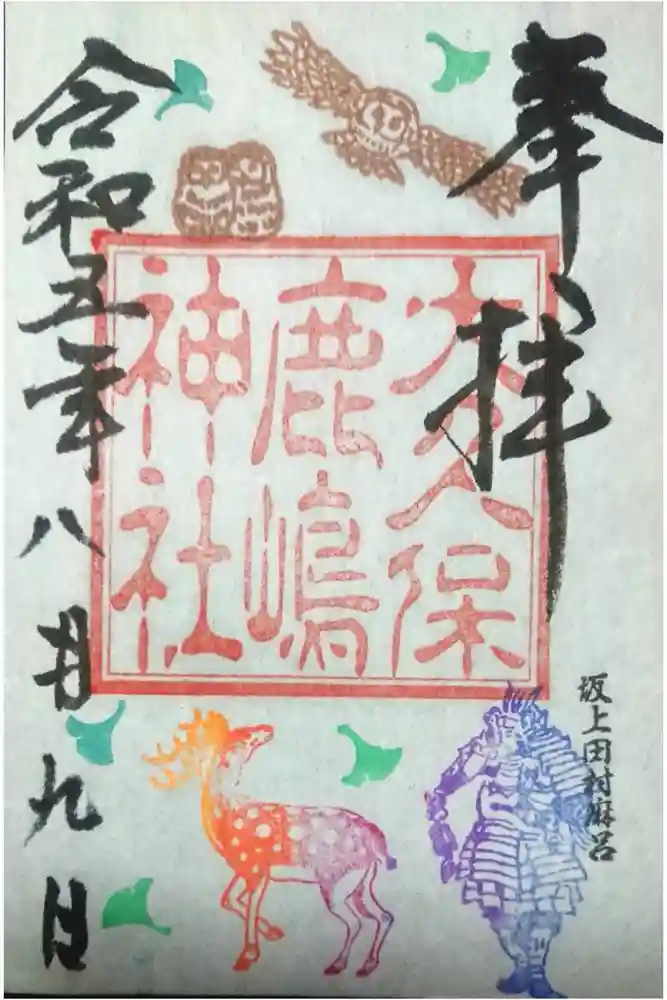 奉拝
大久保
鹿嶋
神社
坂上田村麻呂
令和五年八月九日